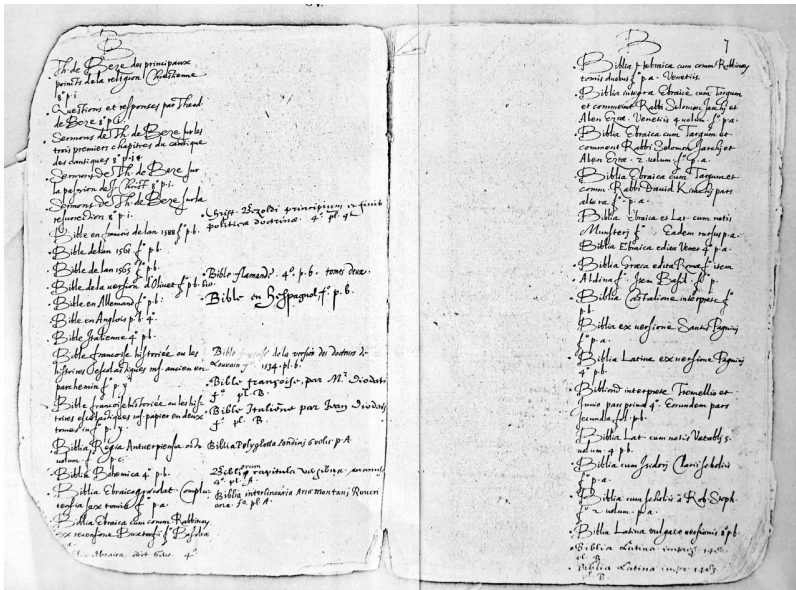 B
Th. de Beze des principaux
points de la religion Chrestienne
8° p. i
Questions et responses par Theod.
de Beze 8° p. i
Sermons de Th. de Beze sur les
trois premiers chapitres du cantique
des cantiques 8° p. i
Sermons de Th. de Beze sur
la passion de J. Christ 8° p. i.
Sermons de Th. de Beze sur la
resurrection 8° p. i.
Bible en francois de lan 1588 f° p. b.
Bible de lan 1561 f° p. b.
Bible de lan 1565 f° p. b.
Bible de la version d'Olivet f° p. b.
Bible en Allemand f° p. b.
Bible en Anglois p. b. 4°
Bible Italienne 4° p. b.
Bible francoise historiée, ou les
histoires escolastiques ms. ancien en
parchemin f° p. y
Bible francoise historiée ou les his-
toires escolastiques ms. papier en deux
tomes in f° p. y.
Biblia Regia Antuerpiensia octo
uolum. f° p. c.
Biblia Bohemica 4° p. b.
Biblia Ebraice
tensia sex tomis f° p. a.
Biblia Ebraica cum comm. Rabbinor.
ex recensione Buxtorfij f° Basileae
Christ. Bezoldi principium et finis
politicae doctrinae. 4° pl. q
Bible flamande. 4°. p. b. tomes deux.
Bible en hespagnol, f° p. b.
Bible de la version des docteurs de
Louvain f° 1534. pl. b.
Bible françoise, par Mr. Diodati
f° pl. B.
Bible Italiene par Ivan Diodati
f° pl. B.
Biblia Polyglotta Londinj 6 vol. p. A.
4° pl. A.
Biblia interlinearia Ariae montanj
fo. pl. A.
B
7
Biblia Hebraica cum comm. Rabbinor.
tomis duobus f° p. a. Venetiis.
Biblia integra Ebraicè cum Targum
et comment. Rabbi Solomon Jarchj et
Aben Ezrae. Venetiis 4 uolum. f° p. a.
Biblia Ebraica cum Targum et
comment. Rabbi Solomon Jarchj et
Aben Ezrae. 2 uolum. f° p. a.
Biblia Ebraica cum Targum et
comm. Rabbi David Kimchj pars
altera f° p. a.
Biblia Ebraica et Lat. cum notis
Munsterj f° Eadem rursus p. a.
Biblia Ebraica edita Venet. 4° p. a.
Biblia Graeca edita Romae f° item
Aldina f° Item Basil. f° p.
Biblia Castalione interprete f°
p. b.
Biblia ex versione Santis Pagninj
f° p. a.
Biblia Latina ex versione Pagninj
4° p. b.
Bibliorum interprete Tremellio et
Junio pars prima 4°. Eorundem pars
secunda fol. p. b.
Biblia Lat. cum notis Vatablj 5.
uolum. 4° p. b.
Biblia cum Isidorj Clarij scholiis
f° p. a.
Biblia cum scholiis à Rob. Steph.
f° 2 uolum. p. a.
Biblia Latina vulgatae versionis 8° p. b.
Biblia Latina
pl. B
Biblia Latina
pl. B.